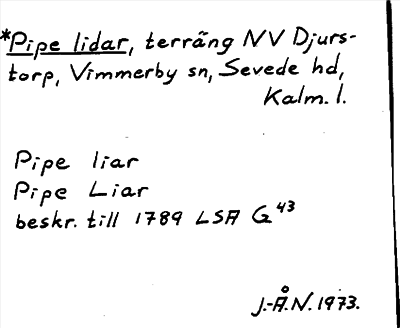 *Pipe lidar, terräng NV Djurs-
torp, Vimmerby sn, Sevede hd,
Kalm. l.
Pipe liar
Pipe Liar
beskr. till 1789 LSA G43
J.-Å.N. 1973.